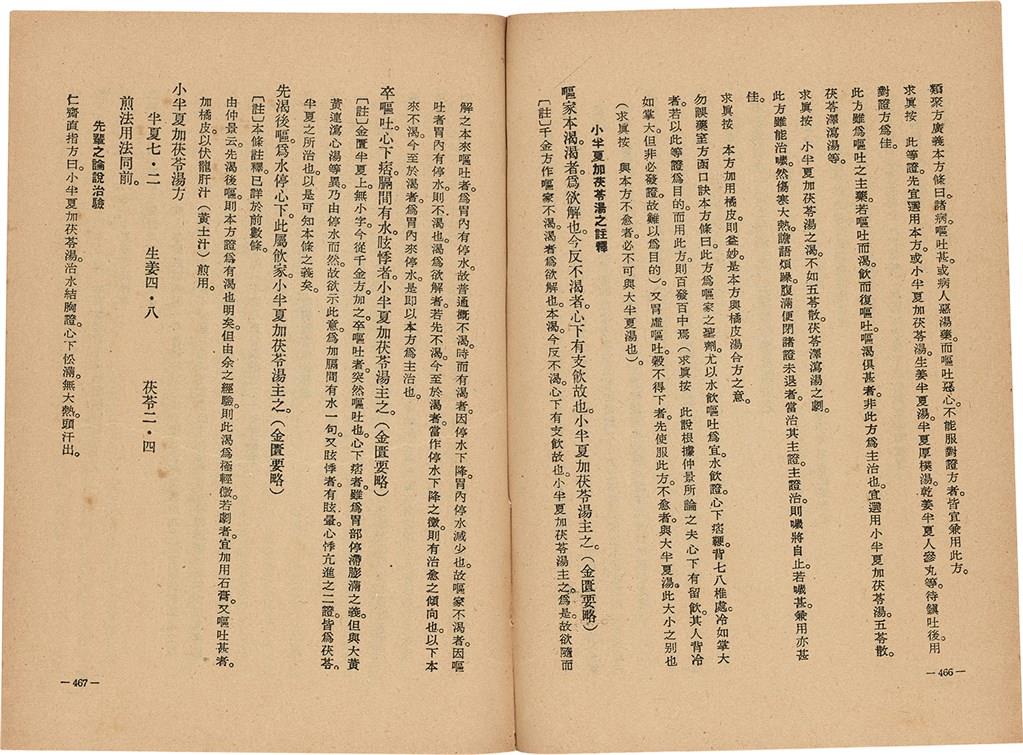 類聚方廣義本方條曰。諸病嘔吐甚。或病人惡湯藥。而嘔吐惡心。不能服對證方者。皆宜兼用此方。
求眞按　此等證。先宜選用本方。或小半夏加茯苓湯。生姜半夏湯。半夏厚樸湯。乾姜半夏人參丸等。待鎭吐後。用
對證方爲佳。
此方雖爲嘔吐之主藥。若嘔吐而渴。飲而復嘔吐。嘔渴俱甚者。非此方爲主治也。宜選用小半夏加茯苓湯。五苓散。
茯苓澤瀉湯等。
求眞按　小半夏加茯苓湯之渴。不如五苓散。茯苓澤瀉湯之劇。
此方雖能治噦。然傷寒大熱。譫語煩躁。腹滿便閉諸證未退者。當治其主證。主證治。則噦將自止。若噦甚。兼用亦甚
佳。
求眞按　本方加用橘皮。則益妙。是本方與橘皮湯合方之意。
勿誤藥室方函口訣本方條曰。此方爲嘔家之聖劑。尤以水飲嘔吐爲宜。水飲證。心下痞鞕。背七八椎處。冷如掌大
者。若以此等證爲目的而用此方。則百發百中焉（求眞按　此說根據仲景所論之夫心下有留飲。其人背冷
如掌大。但非必發證。故難以爲目的）。又胃虛嘔吐。穀不得下者。先使服此方。不愈者。與大半夏湯。此大小之別也
（求眞按　與本方不愈者。必不可與大半夏湯也）
小半夏加茯苓湯之註釋
嘔家本渴。渴者。爲欲解也。今反不渴者。心下有支飲故也。小半夏加茯苓湯主之。（金匱要略）
〔註〕千金方作嘔家不渴。渴者爲欲解也。本渴。今反不渴。心下有支飲故也。小半夏加茯苓湯主之。爲是。故欲隨而
—466—
解之。本來嘔吐者。爲胃內有停水。故普通概不渴。時而有渴者。因停水下降。胃內停水減少也。故嘔家不渴者。因嘔
吐者。胃內有停水。則不渴也。渴爲欲解者。若先不渴。今至於渴者。當作停水下降之徵。則有治愈之傾向也。以下本
來不渴。今至於渴者。爲胃內來停水。是即以本方爲主治也。
卒嘔吐。心下痞。膈間有水。眩悸者。小半夏加茯苓湯主之。（金匱要略）
〔註〕金匱半夏上。無小字。今從千金方加之。卒嘔吐者。突然嘔吐也。心下痞者。雖爲胃部停滯膨滿之義。但與大黃
黃連瀉心湯等異。乃由停水而然。故欲示此意。爲加膈間有水一句。又眩悸者。有眩暈。心悸亢進之二證。皆爲茯苓。
半夏之所治也。以是可知本條之義矣。
先渴後嘔。爲水停心下。此屬飲家。小半夏加茯苓湯主之。（金匱要略）
〔註〕本條註釋。已詳於前數條。
由仲景云。先渴後嘔。則本方證爲有渴也。明矣。但由余之經驗。則此渴爲極輕微。若劇者。宜加用石膏。又嘔吐甚者。
加橘皮。以伏龍肝汁（黃土汁）煎用。
小半夏加茯苓湯方
半夏七・二　生姜四・八　茯苓二・四
煎法用法同前。
先輩之論說治驗
仁齋直指方曰。小半夏加茯苓湯。治水結胸證。心下怔滿。無大熱。頭汗出。
—467—